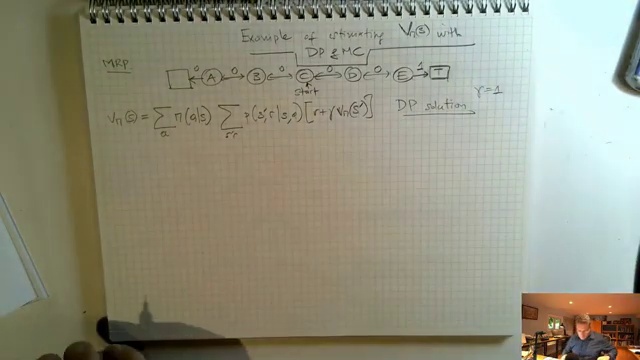 Example of estimating Vπ(s) with
DP & MC
MRP
0 A 0 B 0 C 0 D 0 E 1 T
start
γ=1
Vπ(s) = ∑a π(a|s) ∑s',r p(s',r|s,a) [r+γVπ(s')] DP solution